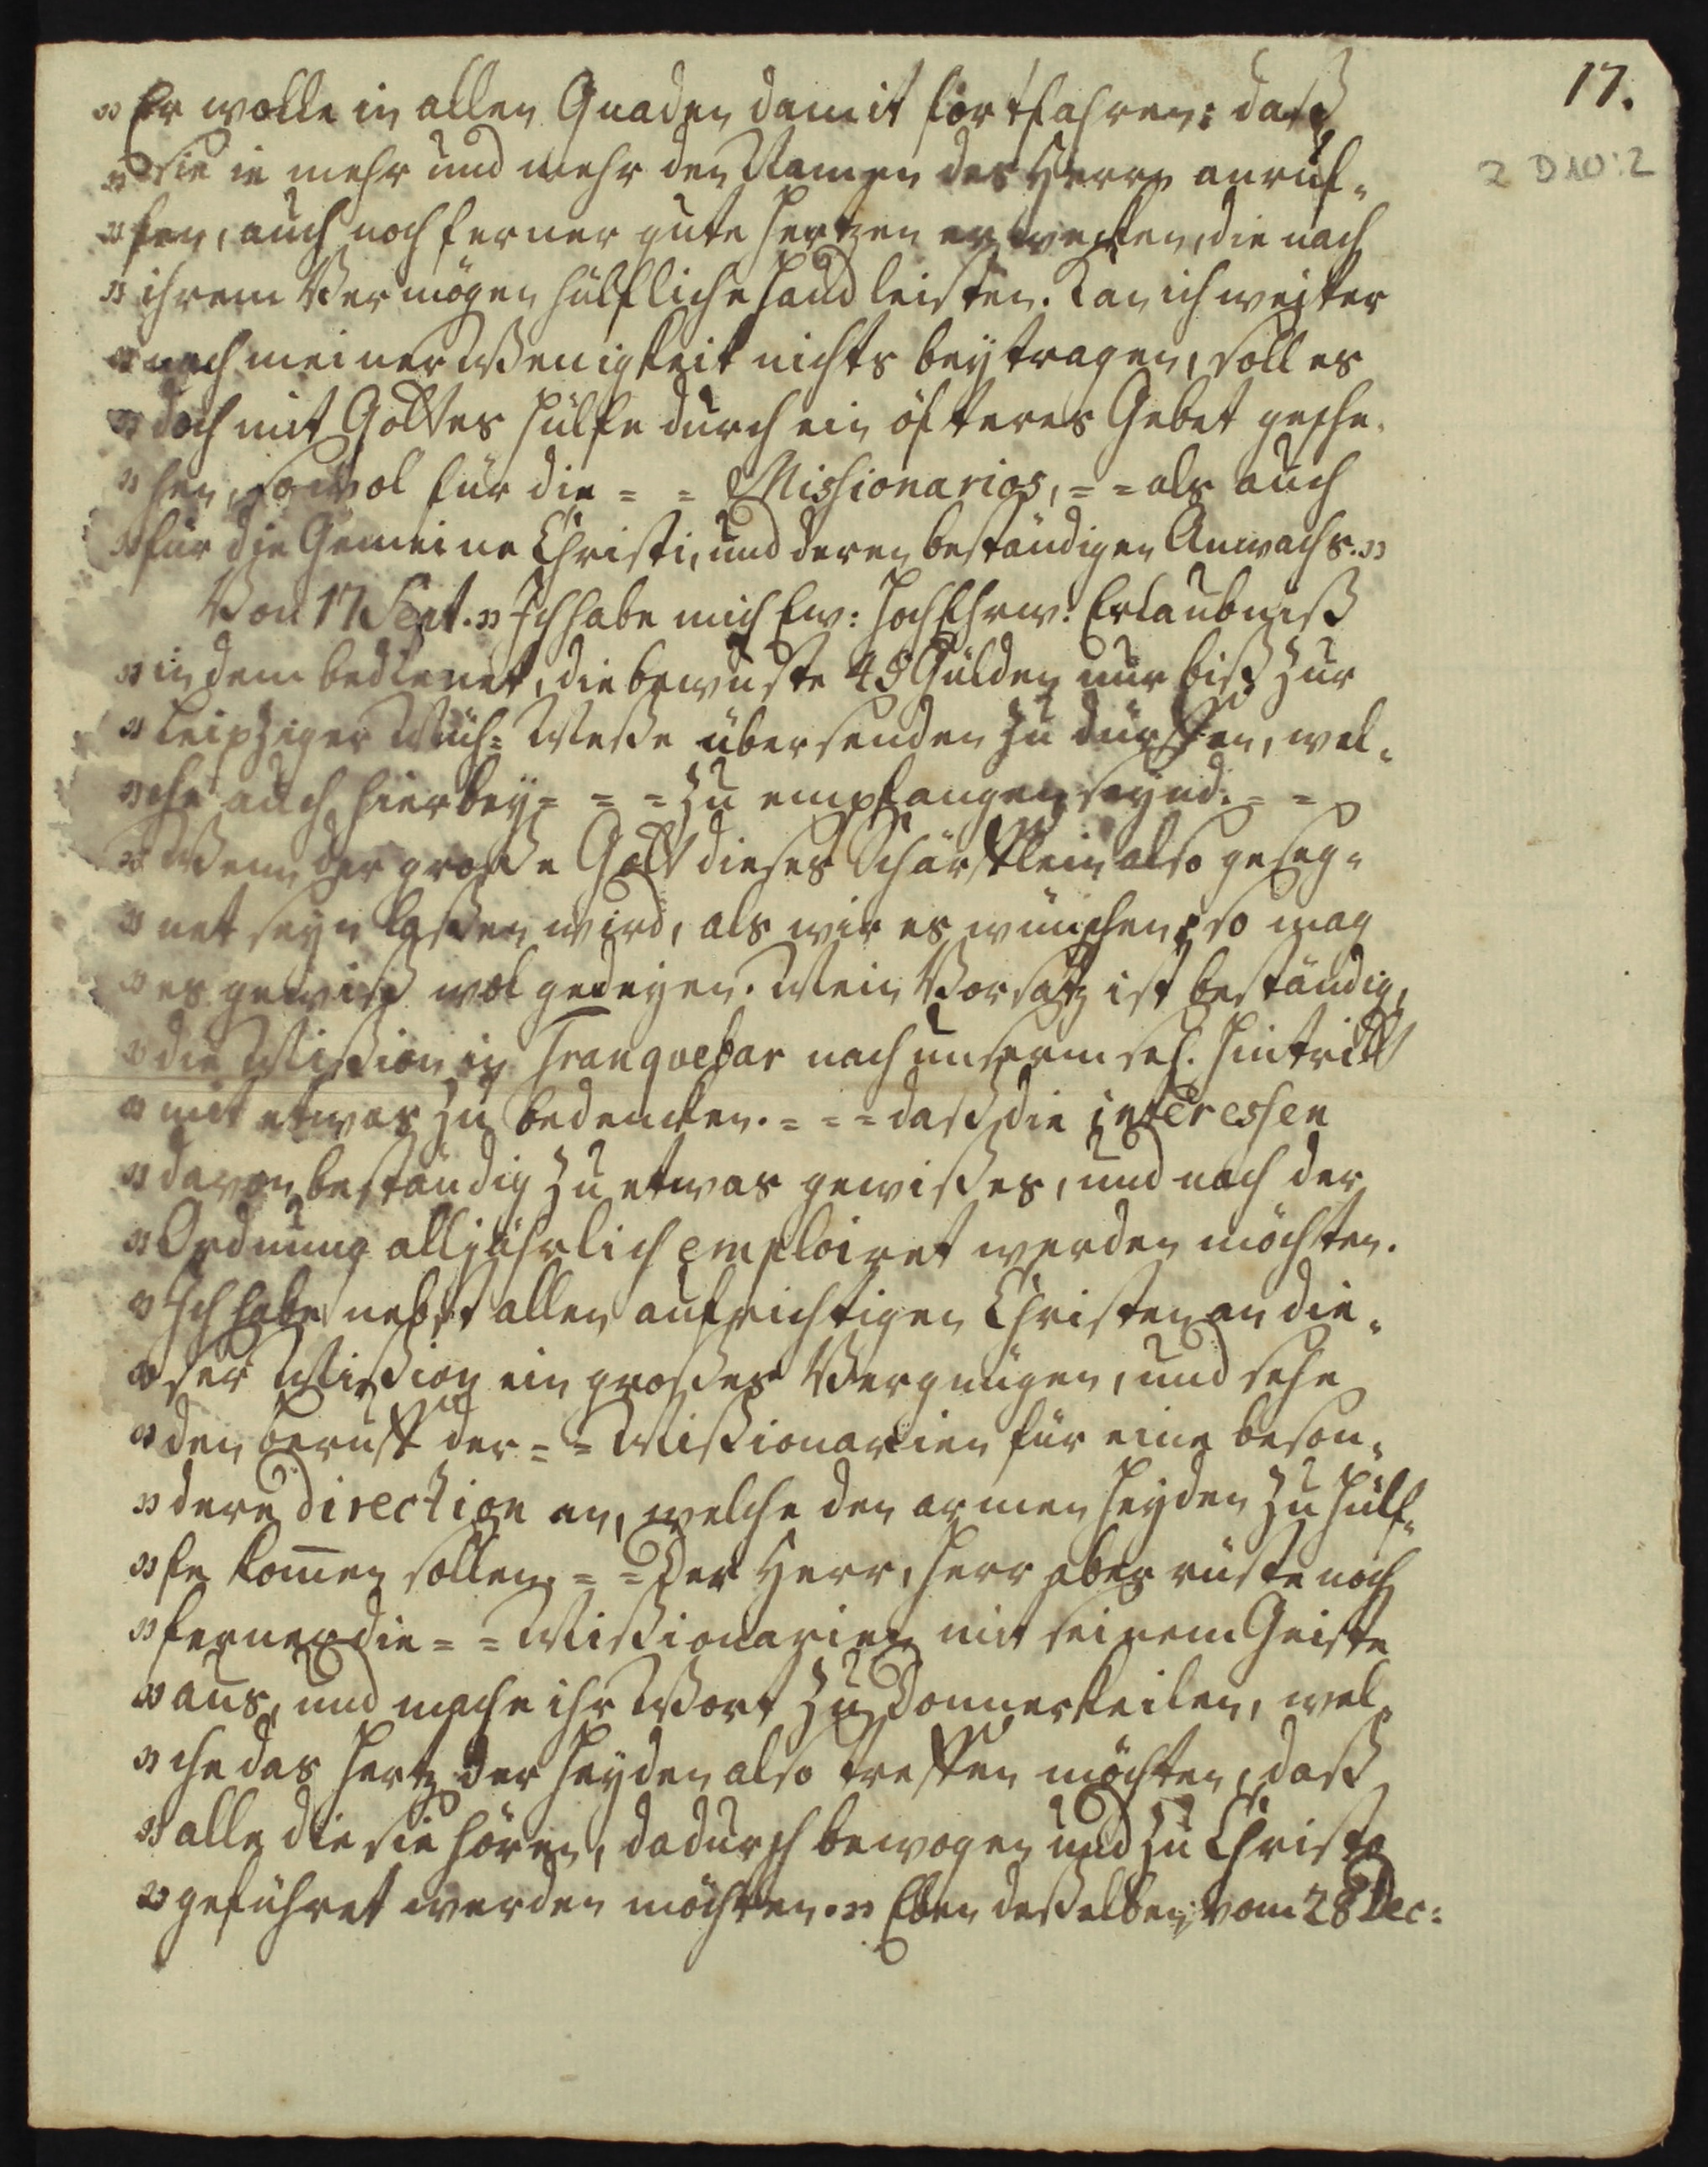 17.
2 D10:2
„Er wolle in allen Gnaden damit fortfahren: daß
„sie ie mehr und mehr den Namen des Herrn anruf„
„fen, auch noch ferner gute Hertzen erwecken, die nach
„ihrem Vermögen hülfliche Hand leisten. Kan ich weiter
„nach meiner Wenigkeit nichts beytragen, soll es
„doch mit Gottes Hülfe durch ein öfteres Gebet gesche„
„hen, sowol für die = = Missionarios, = = als auch
„für die Gemeine Christi, und deren beständigen Anwachs.„
Von 17 Sept. „Ich habe mich Ew: HochEhrw: Erlaubniß
„in dem bedienet, die bewuste 45 Gulden nur biß zur
„Leipziger Mich: Meße übersenden zu dürffen, wel„
„che auch hierbey = = = zu empfangen seynd. = =
„Wenn der große Gott dieses Schärfflein also geseg„
„net seyn laßen wird, als wir es wünschen, so mag
„es gewiß wol gedeyen. Mein Vorsatz ist beständig,
„die Mißion in Tranquebar nach unserm sel. Hintritt
„mit etwas zu bedencken. = = = daß die interessen
„davon beständig zu etwas gewißes, und nach der
„Ordnung alljährlich emploiret werden möchten.
„Ich habe nebst allen aufrichtigen Christen an die„
„ser Mißion ein großes Vergnügen, und sehe
„den beruff der = = Mißionarien für eine beson„
„dere direction an, welche den armen Heyden zu Hülf„
„fe kom̄en sollen. = = Der Herr, Herr aber rüste noch
„ferner die = = Mißionarien mit seinem Geiste
„aus, und mache ihr Wort zu Donnerkeilen, wel„
„che das Hertz der Heyden also treffen möchten, daß
„alle die sie hören, dadurch bewogen und zu Christo
„geführet werden möchten.„ Eben deßelben vom 28 Dec: